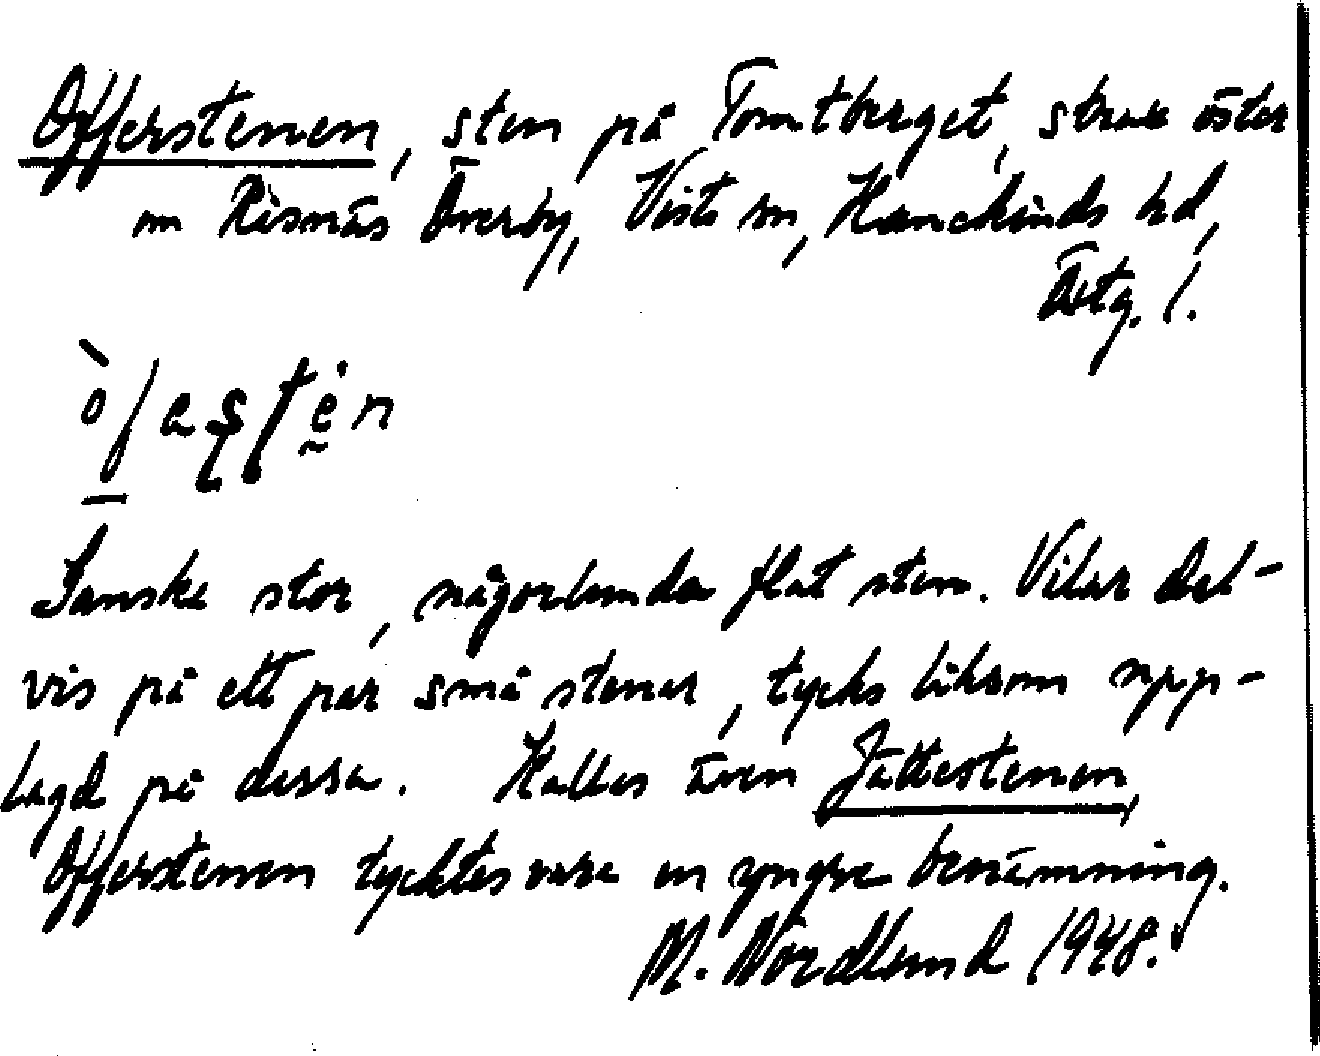 Offerstenen, sten på Tomtberget, strax öster
om Risnäs Överby, Vists sn, Hanekinds hd,
Östg. l.
Ganske stor, någorlunda flat sten. Vilar del-
vis på ett par små stenar, tycks liksom upp-
lagd på dessa. Kallas även Jättestenen,
Offerstenen tycktes vara en yngre benämning.
M. Nordlund 1948.